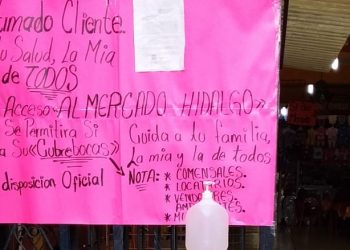 umado Cliente.
u Salud, La Mia
de TODOS
Acceso «AL MERCADO HIDALGO»
Se Permitira Si
a Su «Cubrebocas»
disposicion Oficial
Cuida a tu familia,
La mia y la de todos
NOTA: * COMENSALES.
* LOCATARIOS.
* VEN
* AM
* M